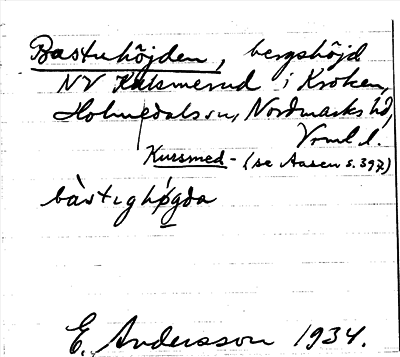 Bastuhöjden, bergshöjd
NV Kalsmerud i Kroken,
Holmedals sn, Nordmarks hd,
Vrml l.
Kursmed- (se Aasen s. 397)
bàstighǿgda
E. Andersson 1934.